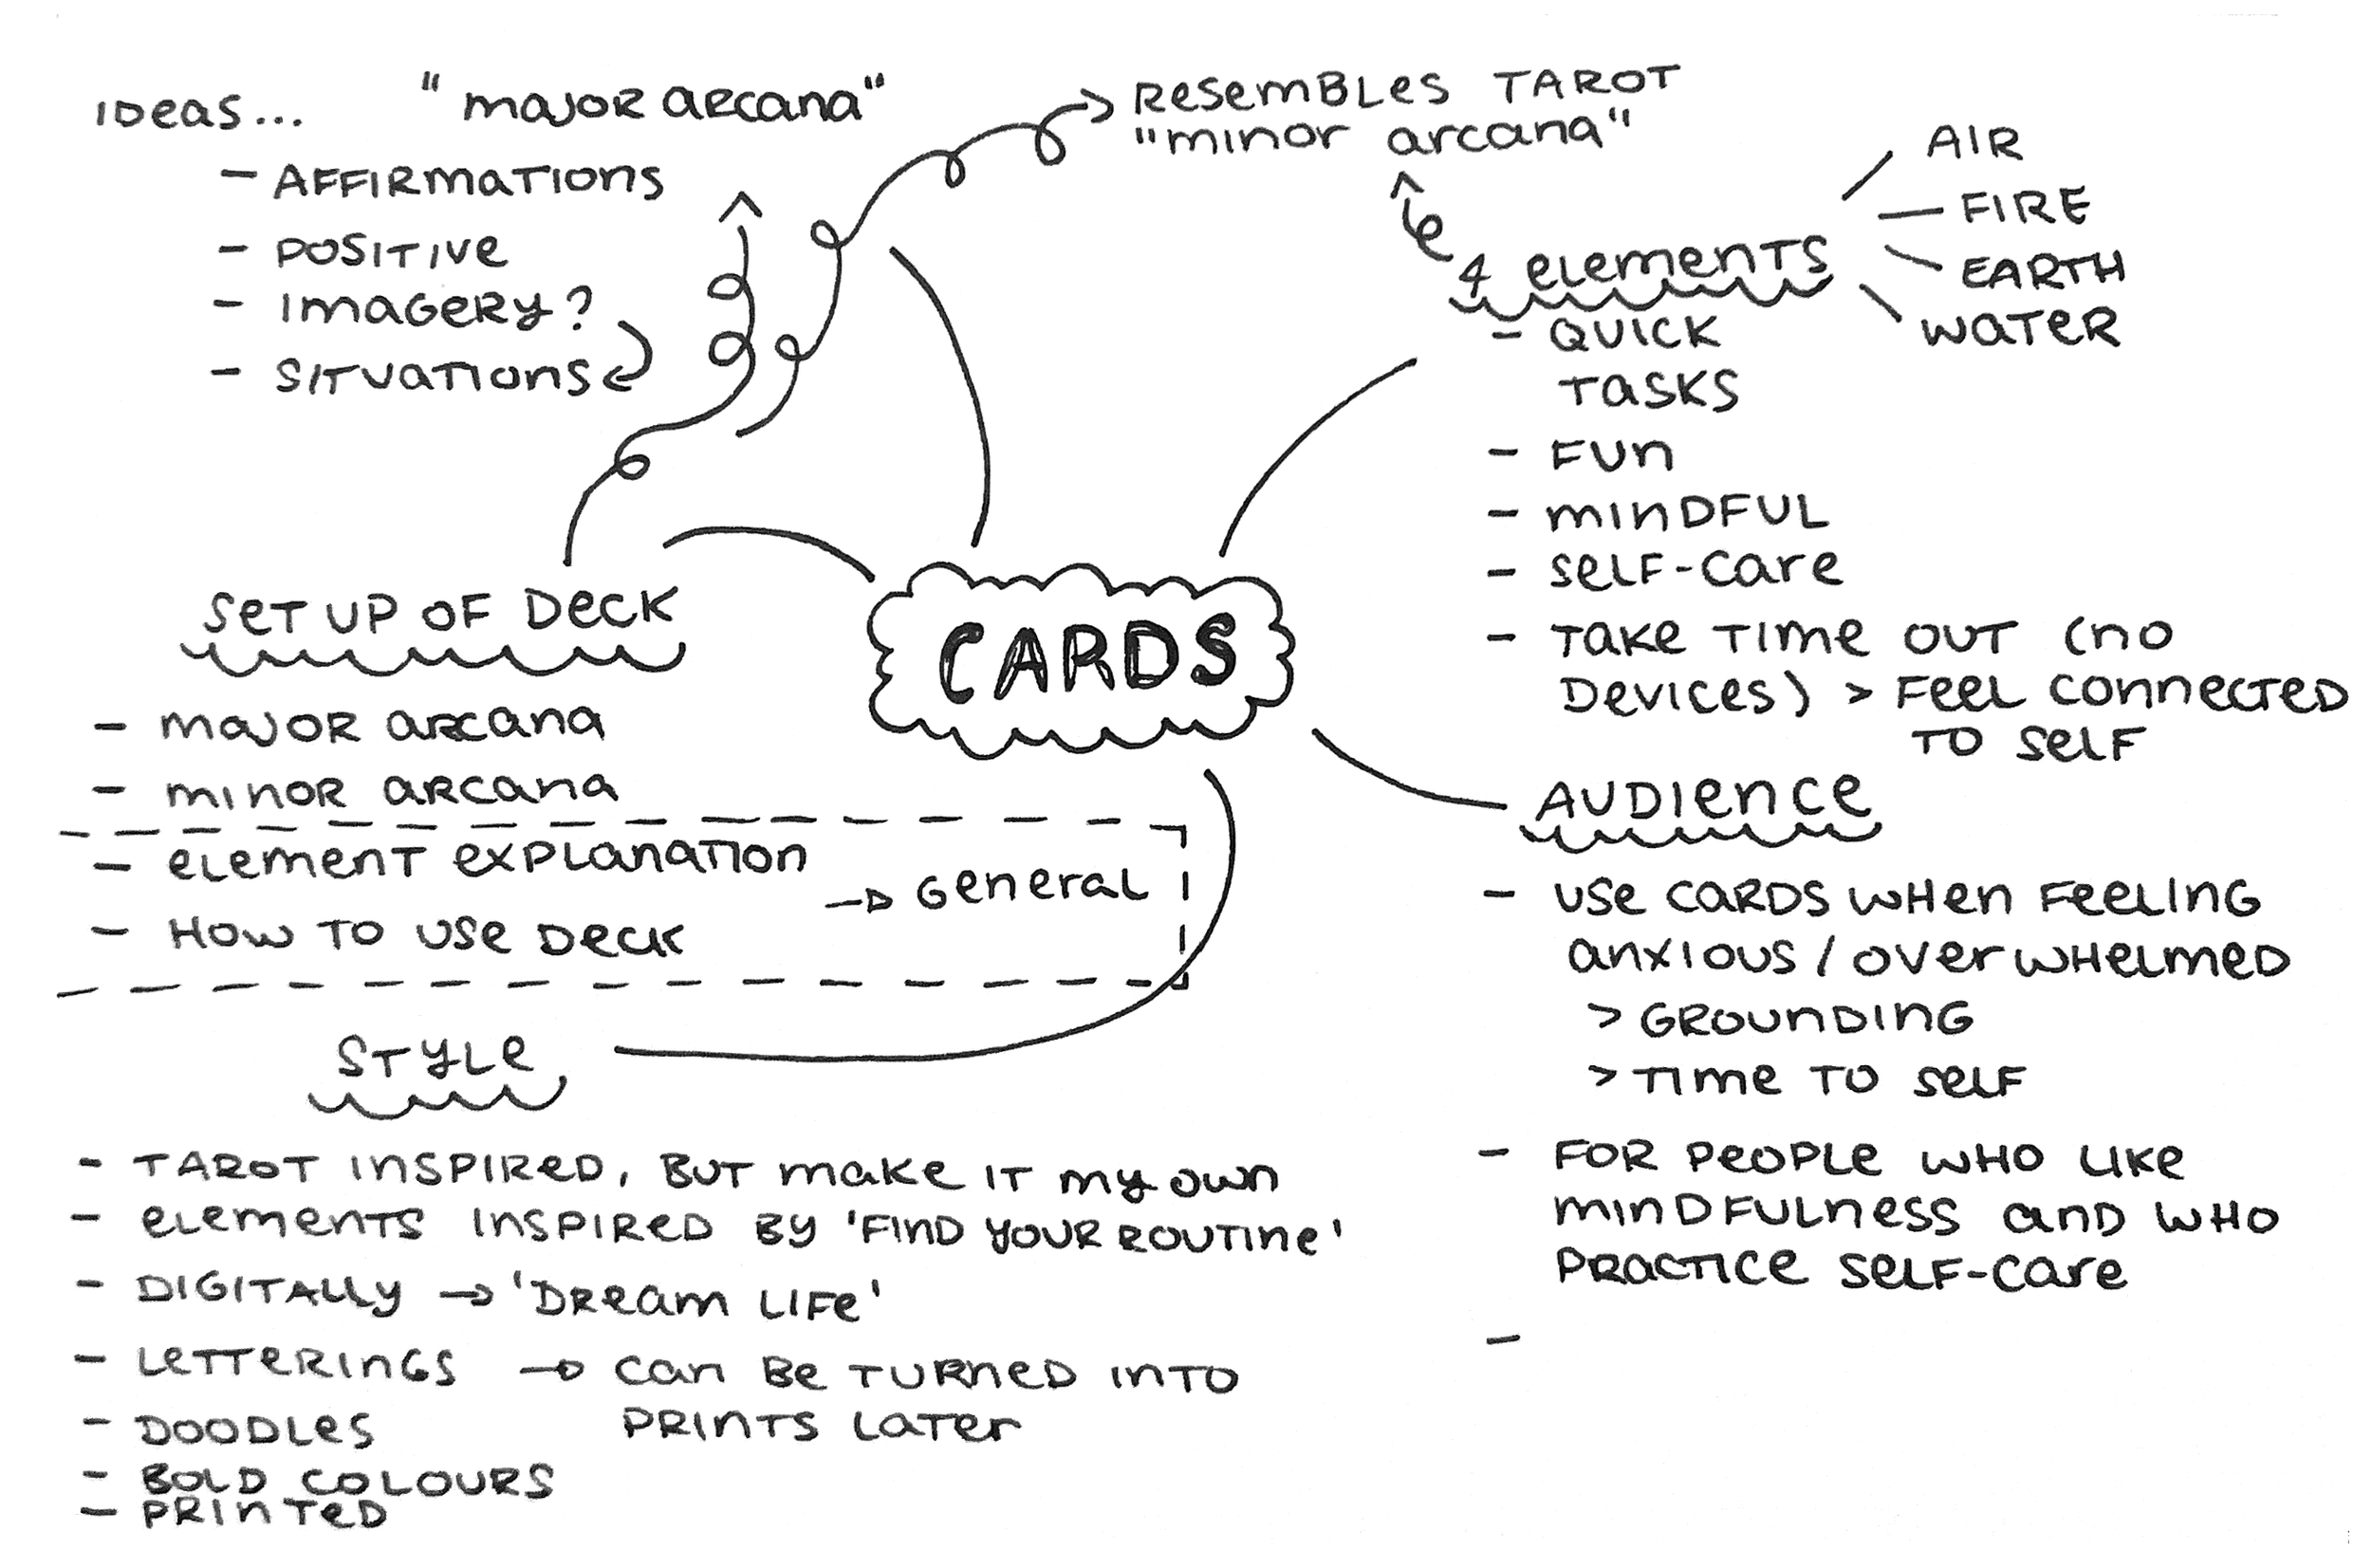 IDeas...
"major arcana"
- AFFIRmaTIOns
- POSITIVe
- ImaGeRy?
- SITUaTIOns
ResemBLes TAROT
"minor arcana"
4 eLemenTS
AIR
FIRE
EARTH
WaTeR
- QUICK
TaSKS
- FUn
- minDFUL
- seLF-care
- Take Time OUT (no
Devices) > FeeL connecTeD
TO seLF
CARDS
seT UP OF DecK
- major arcana
- minor arcana
- eLemenT exPLanaTion
- HOW TO use DecK
→ General
AUDIence
- use CARDS wHen FeeLInG
anxious / overwHeLmeD
> GROUnDInG
> Time TO seLF
- FOR PeOPLe wHO LIKe
minDFULness anD wHO
PRacTice seLF-care
-
STYLe
- TAROT InSPIReD, BUT make IT my own
- eLemenTS InSPIRED By 'FInD yOUR ROUTIne'
- DIGITALLy → 'DReam LIFe'
- LeTTeRInGS → can Be TURneD InTO
PRInTS LaTer
- DOODLes
- BOLD COLOURS
- PRInTeD